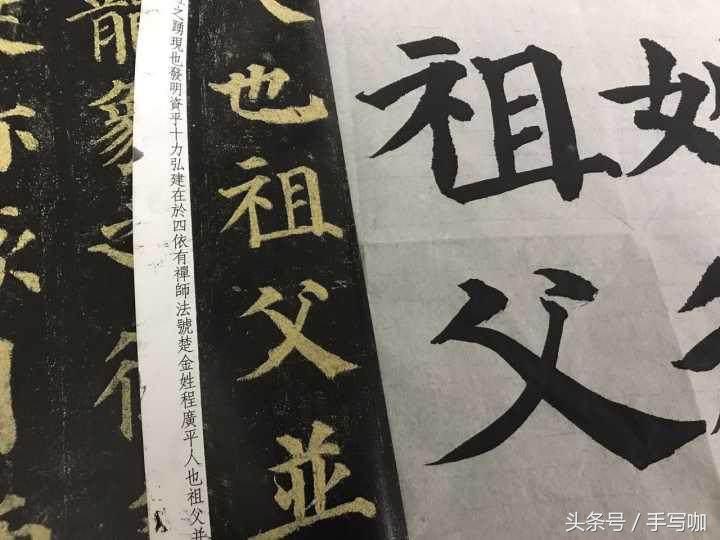 祖父
也祖父並
之踴現也發明資乎十力弘建在於四依有禪師法號楚金姓程廣平人也祖父並
龍象之
头条号 / 手写咖